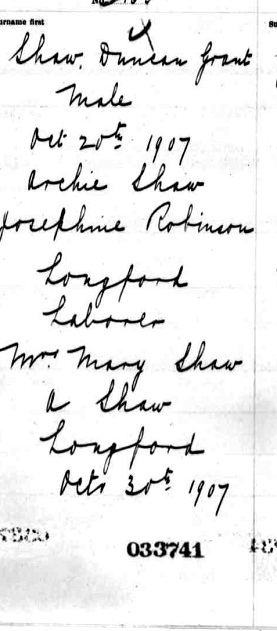 urname first
Shaw, Duncan Grant
Male
Oct 20th 1907
Archie Shaw
Josephine Robinson
Longford
Laborer
Mrs Mary Shaw
A Shaw
Longford
Octr 30th 1907
033741